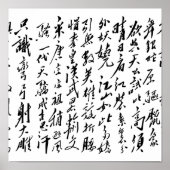 舞銀蛇原驰臘象
欲与天公试比高須
晴日看红装素裹分
外妖娆江山如此多娇
引無数英雄競折腰
惜秦皇漢武略输文
采唐宗宋祖稍逊風
骚一代天骄成吉思汗
只識弯弓射大雕